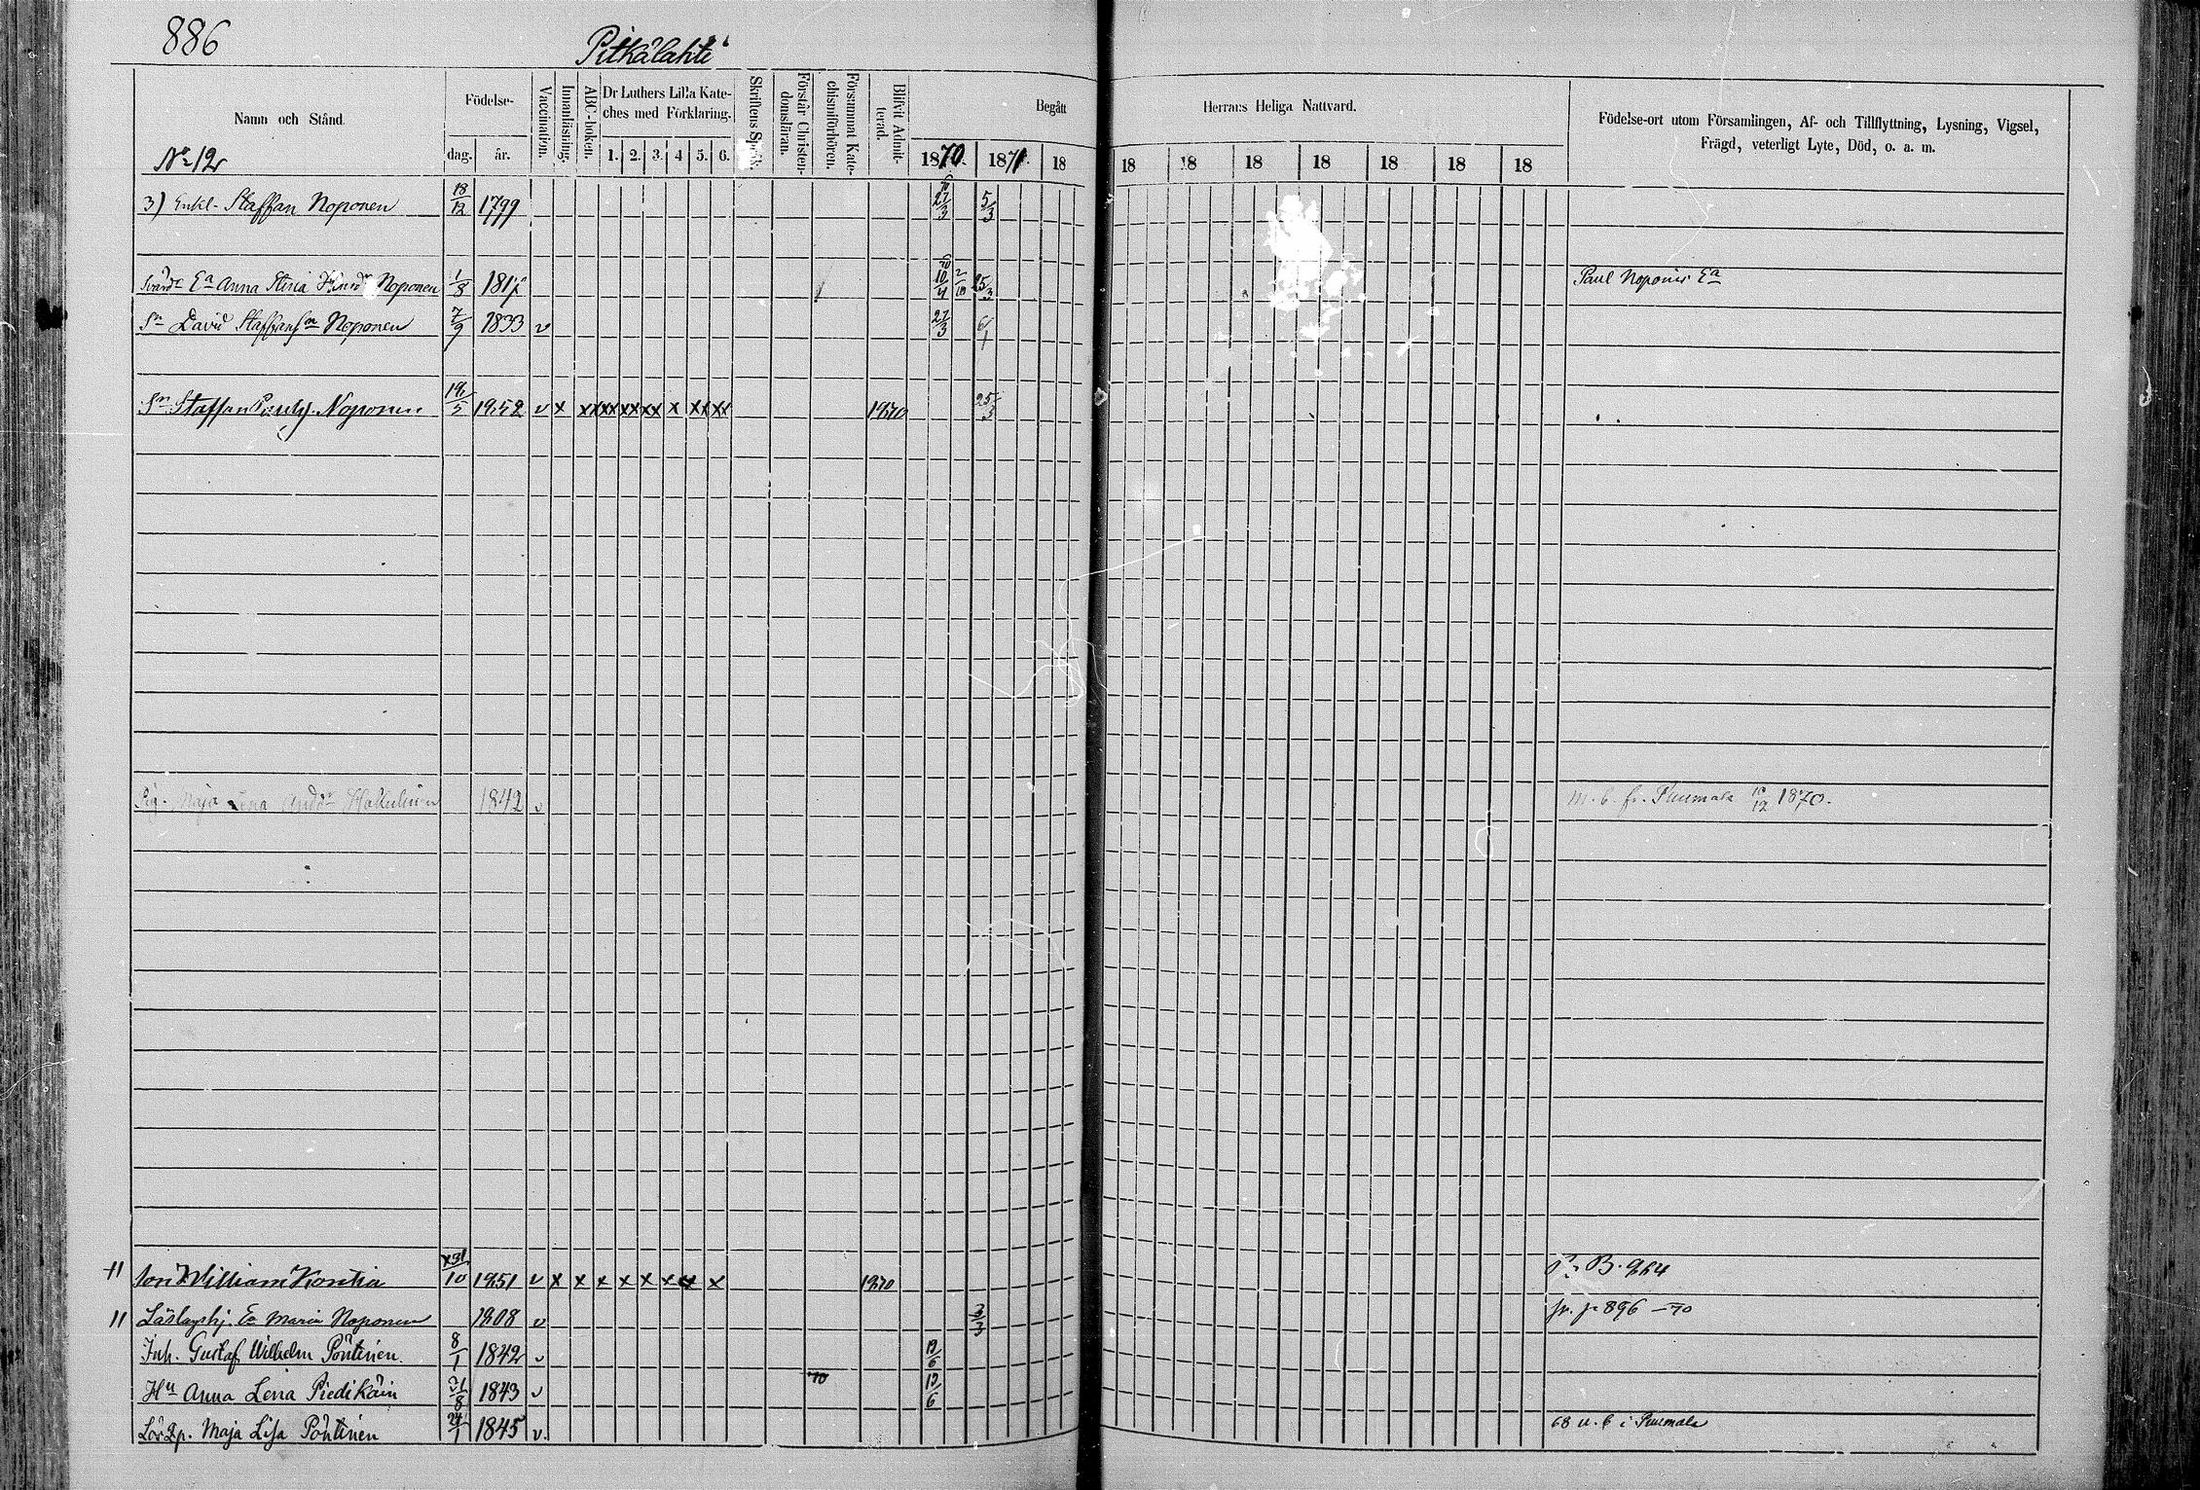 886
Pitkälahti
Namn och Stånd.
Födelse-
dag.
år.
Vaccination.
Innanläsning.
ABC-boken.
Dr Luthers Lilla Kate-
ches med Förklaring.
1. 2. 3. 4 5. 6.
Skriftens Språk.
Förstår Christen-
domsläran.
Försummat Kate-
chismiförhören.
Blifvit Admit-
terad.
Begått
Herrans Heliga Nattvard.
1870. 1871. 18 18 18 18 18 18 18 18
Födelse-ort utom Församlingen, Af- och Tillflyttning, Lysning, Vigsel,
Frägd, veterligt Lyte, Död, o. a. m.
No 12
3) Enkl. Staffan Noponen 18/12 1799 70 27/3 5/3
Ea Anna Stina Noponen 1/8 70 10/4 2/10 25/3 Paul Noponis Ea
Sn David Staffansn Noponen 7/9 1833 v 27/3 6/1
Sn Staffan Noponen 16/5 1852 v x xx xx xx xx x xx xx 1870 25/3
Maja Lena 1842 v m. b. fr. Puumala 10/12 1870.
11 son William Kontia 31/10 1851 v x x x x x x x x 1870 B. 964
11 Ea Maria Noponen 1808 v 3/3 fr. p 896 -70
Inh. Gustaf Wilhelm Pöntinen. 8/1 1842 v 19/6
Hu Anna Lena Piedikäin 21/8 1843 v 70 19/6
Maja Lisa Pöntinen 24/1 1845 v. 68 u. b i Puumala